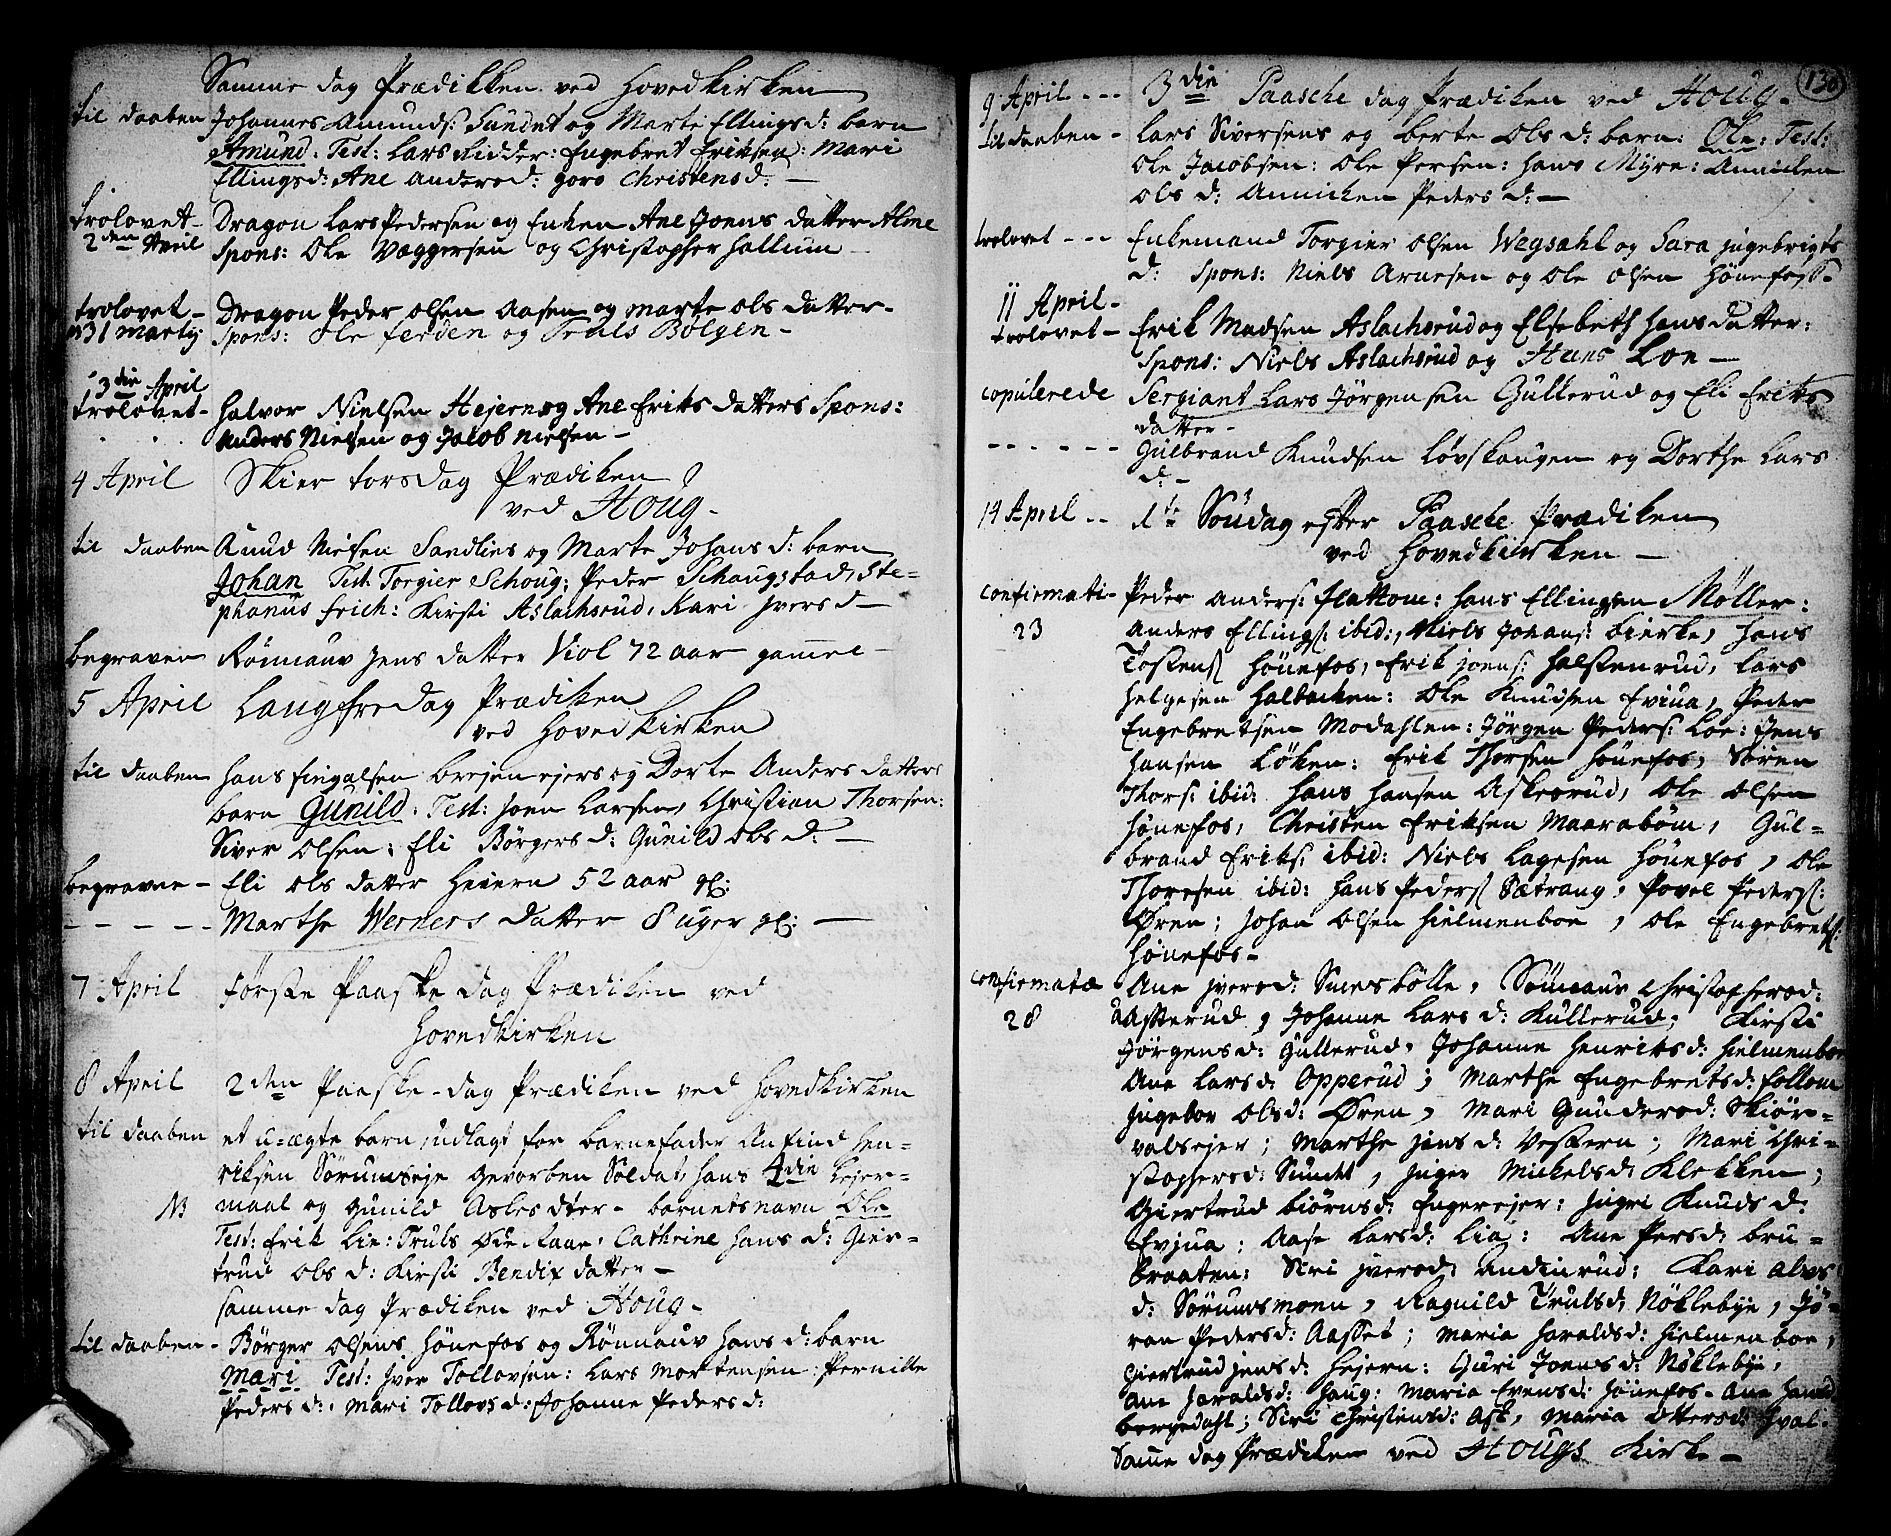 Samme dag Prædikken ved Hovedkirken
til daaben Johannes Amunds: Sundet og Marte Ellings d: barn
Amund. Test: Lars Ridder: Engebret Eriksen: Mari
Ellingsd: Ane Andersd: goro Christensd: —
trolovet — Dragon Lars Pedersen og Enken Ane Joens datter Alme
2den April Spons: Ole Vaggersen og Christopher Hallum
trolovet — Dragon Peder Olsen Aasen og Marte Ols datter —
31 Marty Spons: Ole ferden og Truls Bolgen —
3die April
trolovet — Halvor Nielsen Hejern og Ane Eriks datters Spons:
Anders Nielsen og Jacob Nielsen —
4 April Skier torsdag Prædiken
ved Houg —
til daaben Knud Nielsen Sandlies og Marte Johans d: barn
Johan Test Torgier Schoug: Peder Schaugstad, Ste=
phanus Erich: Kirsti Aslachsrud, Kari Jvers d —
begraven Rönnauv Jens datter Viol 72 aar gammel —
5 April Langfredag Prædiken
ved Hovedkirken
til daaben Hans fingalsen brejen ejers og Dorte Anders datters
barn Gunild. Test: Joen Larsen, Christian Thorsen:
Siver Olsen: Eli Börgers d: Gunild Ols d: —
begraven — Eli Ols datter Heiern 52 aar gl:
— — — — — Marthe Werners datter 8 uger gl: —
7 April første Paaske dag Prædiken ved
Hovedkirken
8 April 2den Paaske-dag Prædiken ved Hovedkirken
til daaben et u=ægte barn, udlagt for barnefader Anfind Hen=
riksen Sörumseje gevorben Soldat, hans 4die lejer=
NB maal og Gunild Asles dter — barnets navn Ole
Test: Erik Lie: Truls Øde Raae, Cathrine Hans d: Gier=
trud Ols d: Kirsti Bendix datter —
samme dag Prædiken ved Houg —
til daaben — Börger Olsens Hönefos og Rönnauv Hans d: barn
Mari Test: Jver Tollovsen: Lars Mortensen: Pernille
Peders d:, Mari Tollovs d: Johanne Peders d:
130
9 April --- 3die Paasche dag Prædiken ved Houg —
til daaben — Lars Siversens og Berte Ols d: barn: Ole: Test:
Ole Jacobsen: Ole Persen: Hans Myre: Annichen
Ols d: Annichen Peders d: —
trolovet --- Enkemand Torgier Olsen Wegsahl og Sara Jngebrigts
d: Spons: Niels Arnesen og Ole Olsen Hönefoss —
11 April —
trolovet — Erik Madsen Aslachsrud og Elsebeth Hans datter:
Spons: Niels Aslachsrud og Hans Loe —
copulerede Sergiant Lars Jörgensen Gulkerud og Eli Eriks
datter —
- - - - - - Gulbrand Knudsen Lövskaugen og Dorthe Lars
d: —
14 April -- 1te Söndag efter Paasche Prædiken
ved Hovedkirken —
confirmati — Peder Anders: flattom: Hans Ellingsen Möller:
23 Anders Ellings: ibid:, Niels Johans: bierke, Hans
Tostens Hönefos, Erik Joens: Halstenrud, Lars
Helgesen Halbacken: Ole Knudsen Eviua, Peder
Engebretsen Modahlen: Jörgen Peders: Loe: Jens
Hansen Löken: Erik Thorsen Hönefos, Sören
Thors: ibid: Hans Hansen Askesrud, Ole Olsen
Hönefos, Christen Eriksen Maaraböm, Gul=
brand Eriks: ibid: Niels Lagesen Hönefos, Ole
Thoresen ibid: Hans Peders Sætrang, Povel Peders:
Øren; Johan Olsen Hielmenboe, Ole Engebrets:
Hönefos —
confirmatæ Ane Jversd: Smeskölle, Rönnauv Christophersd:
28 Aasterud, Johanne Lars d: Kullerud; Kirsti
Jörgensd: Gullerud, Johanne Henriksd: Hielmenboe
Ane Larsd: Opperud; Marthe Engebretsd: follum
Jngebor Olsd: Øren, Mari Gundersd: Skiör=
valsejer; Marthe Jens d: Vestern; Mari Chri=
stophersd: Sundet, Jnger Mickelsd: Klekken;
Giertrud biörnsd: Engerejer: Jngri Knuds d:
Evjua: Aase Larsd: Lia: Ane Persd: bru=
braaten: Siri Jversd: Andinrud: Kari Alvs
d: Sörumsmoen, Ragnild Trulsd: Nöklebye, Jö=
ran Pedersd: Aasset; Maria Haraldsd: Hielmenboe,
Giertrud Jensd: Hejern: Guri Joens d: Nöklebye,
Ane Haraldsd: Haug: Maria Evensd: Hönefos — Ane Hansd
bergedahl; Siri Christensd: Ask, Maria Ottersd: Hval.
Samme dag Prædiken ved Hougs Kirke —